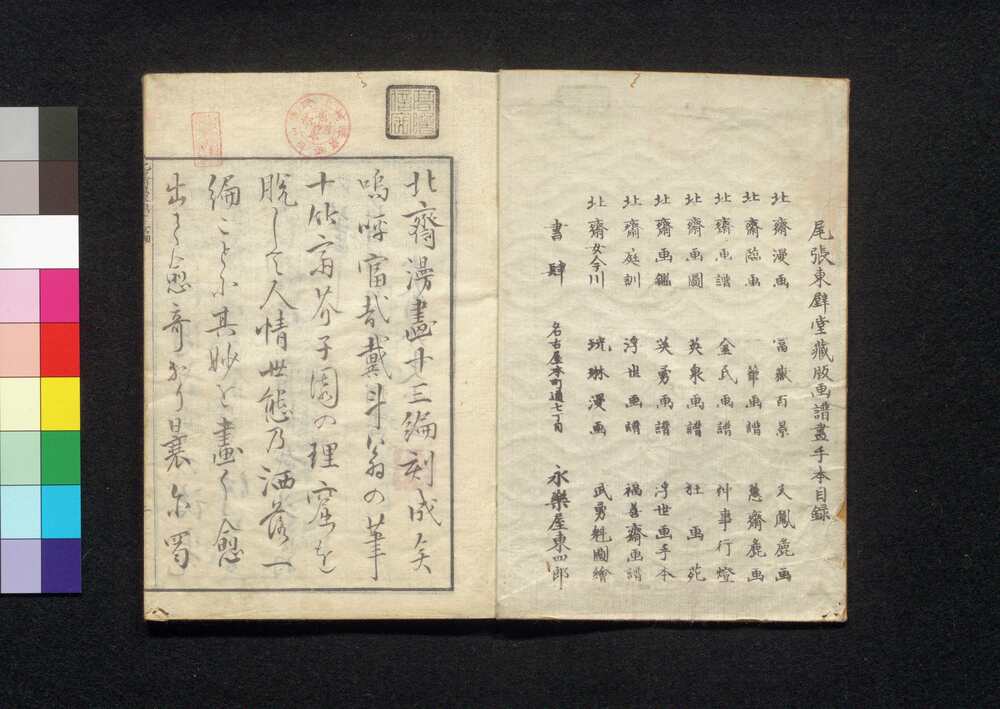 尾張東壁堂藏版画譜畫手本目録
北齋漫画　富嶽百景　文鳳麁画
北齋臨画　一筆画譜　蕙齋麁画
北齋画譜　金氏画譜　艸事行燈
北齋画圖　英泉画譜　狂画苑
北齋画鑑　英勇画譜　浮世画手本
北齋庭訓　浮世画譜　福善齋画譜
北齋女今川　琳漫画　武勇魁圖繪
書肆　名古屋本町通七丁目　永樂屋東四郎
北齋漫畫十三編刻成矣
嗚呼富哉戴斗翁の筆
十竹齋芥子園の理窟を
脱して人情世態乃洒落一
編ことに其妙を畫く愈
出て愈奇なり曩に